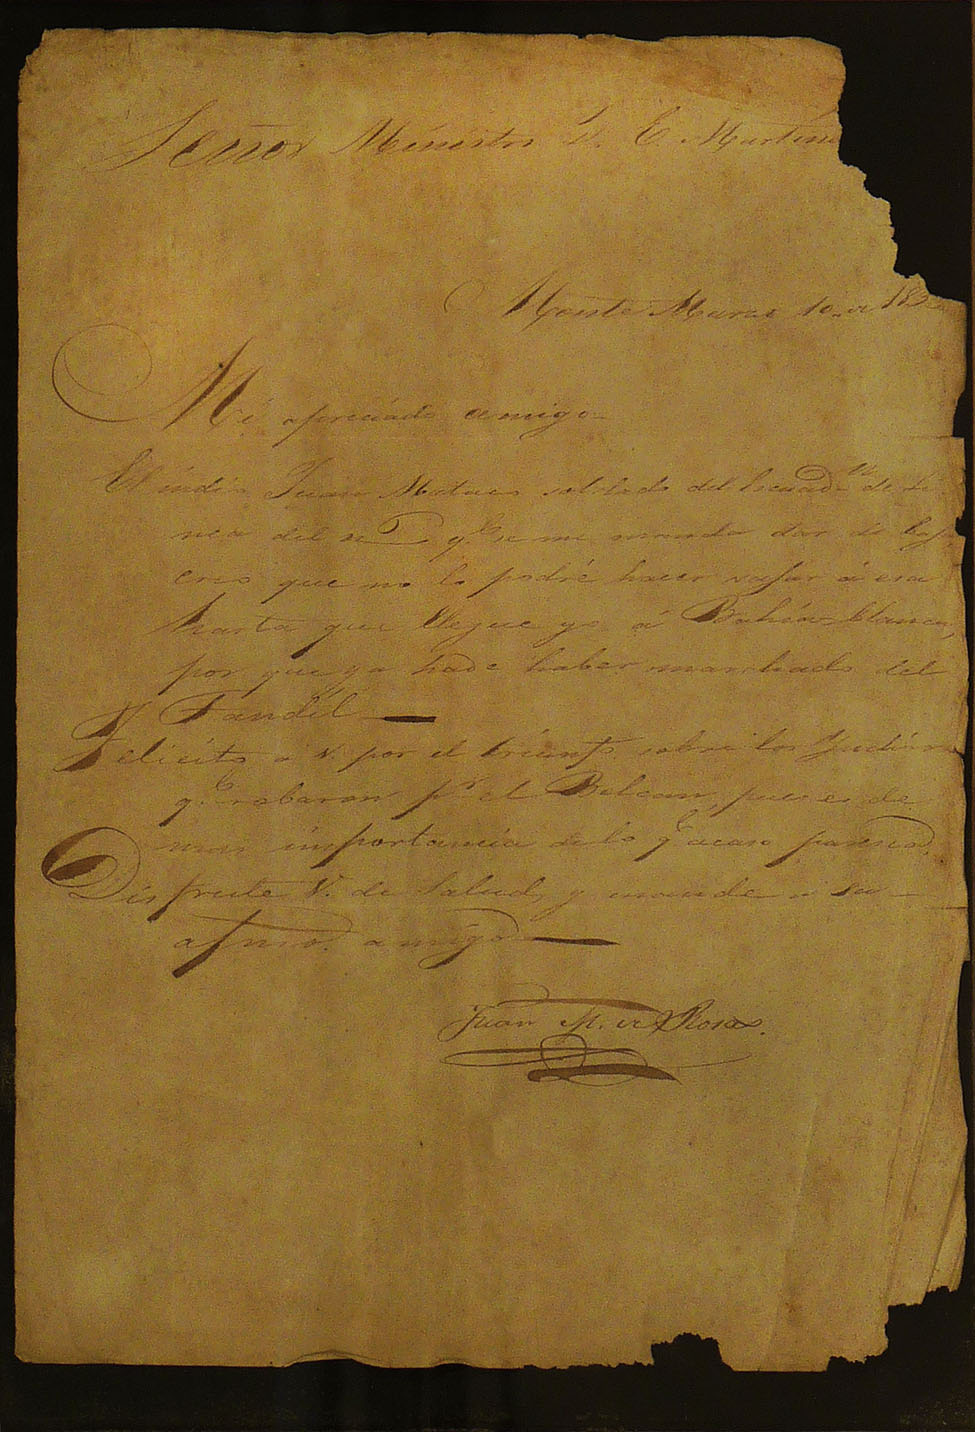 Señor Ministro D. E. Martín
Monte Marzo 10 de 183
Mi apreciado amigo
El indio Juan soldado del de Li
nea del n qe. se me manda dar de baja
creo que no lo podré hacer pasar á esa
hasta que llegue yo á Bahía blanca,
por que ya hade haber marchado del
Tandil
Felicito a V. por el triunfo sobre los Indios
qe. robaron pr. el pues es de
mas importancia de lo qe. acaso parece.
Disfrute V. de salud, y mande a su
afmo. amigo
Juan M. de Rosas.